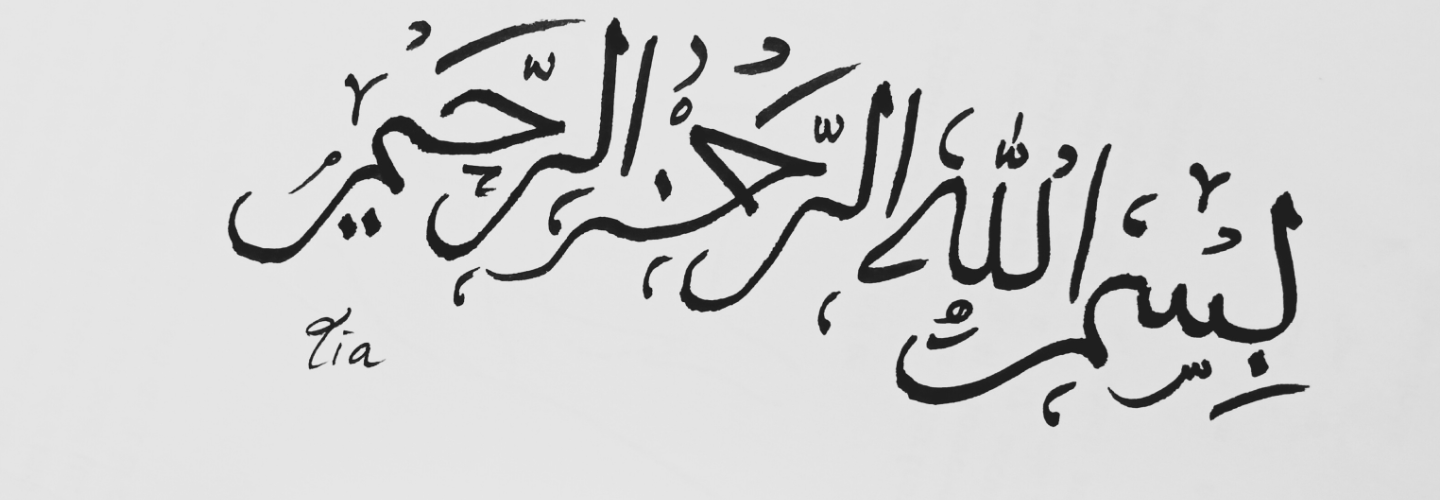 بسم الله الرحمن الرحيم
Tia